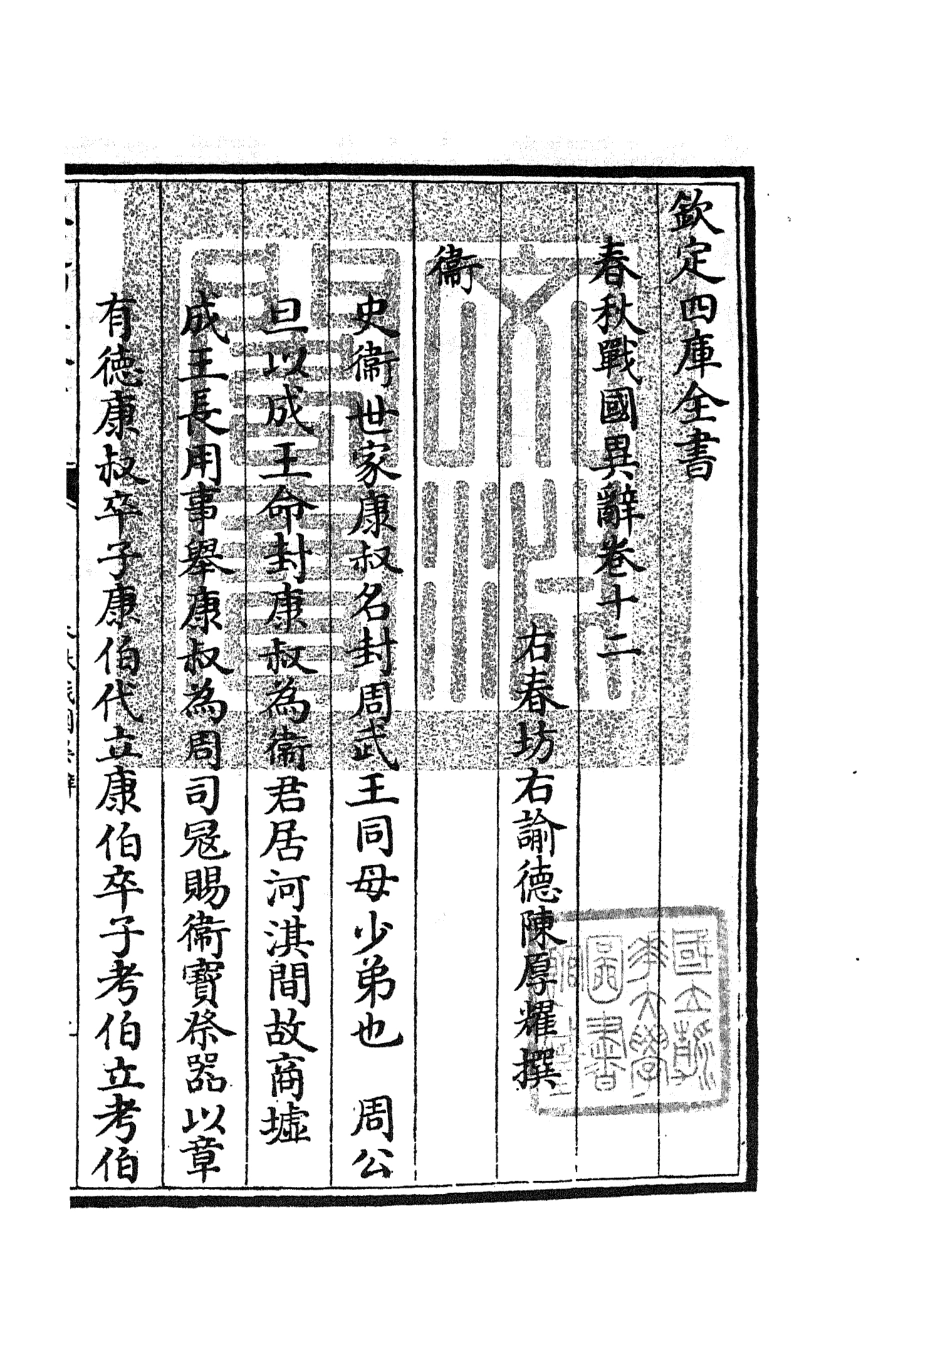 欽定四庫全書
春秋戰國異辭卷十二
右春坊右諭德陳厚耀撰
衞
史衞世家康叔名封周武王同母少弟也　周公
旦以成王命封康叔為衞君居河淇間故商墟
成王長用事舉康叔為周司冦賜衞寳祭器以章
有徳康叔卒子康伯代立康伯卒子考伯立考伯